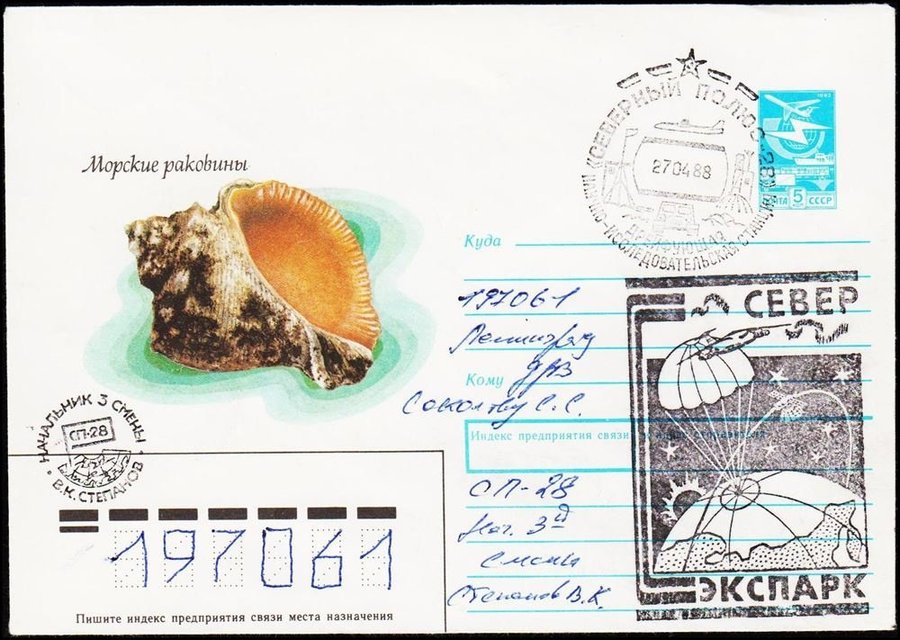 Морские раковины
"СЕВЕРНЫЙ ПОЛЮС-28"
27 04 88
ДРЕЙФУЮЩАЯ
НАУЧНО-ИССЛЕДОВАТЕЛЬСКАЯ СТАНЦИЯ
1983
ПОЧТА 5 СССР
Куда
197061
Ленинград
Кому
Соколову С.С.
Индекс предприятия связи и адрес отправителя
СП-28
Нач. 3й
смены
Степанов В.К.
СЕВЕР
ЭКСПАРК
НАЧАЛЬНИК 3 СМЕНЫ
СП-28
В.К. СТЕПАНОВ
197061
Пишите индекс предприятия связи места назначения